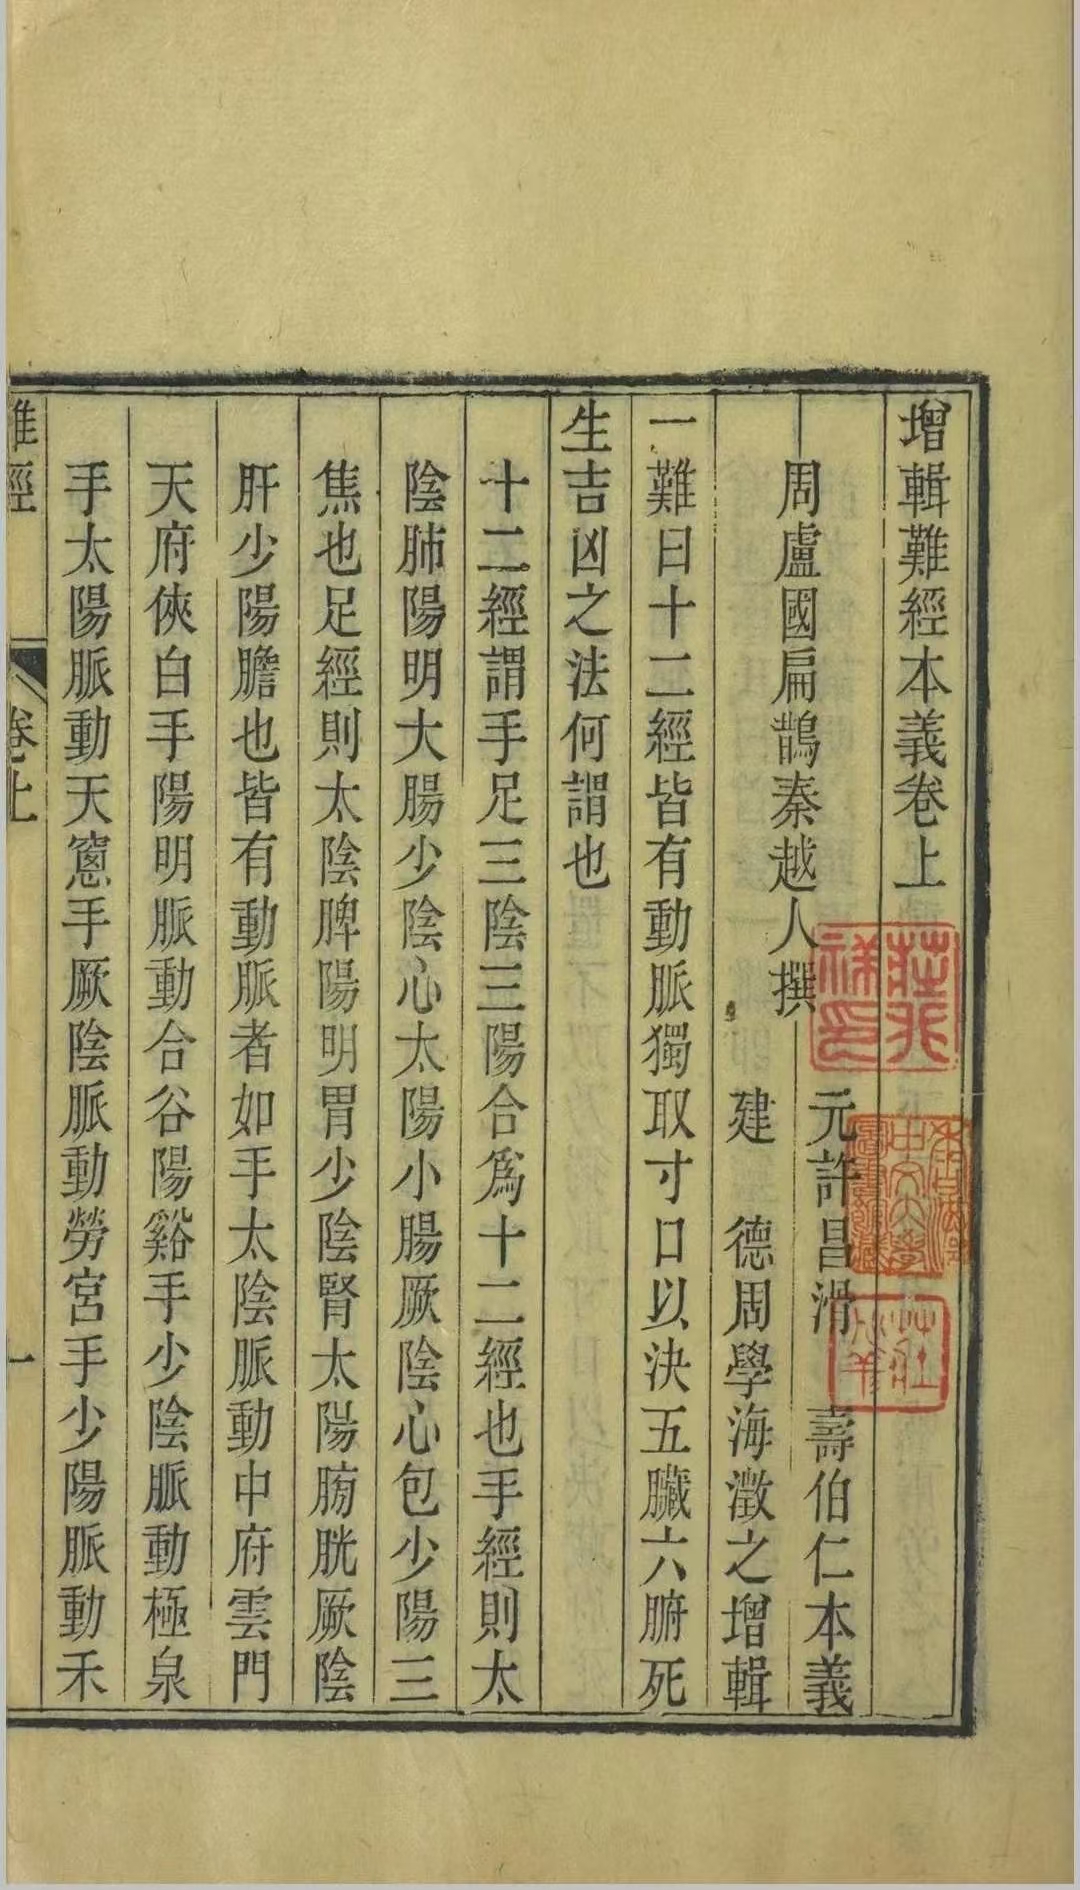 增輯難經本義卷上
周盧國扁鵲秦越人撰
元許昌滑　壽伯仁本義
建　德周學海澂之增輯
一難曰十二經皆有動脈獨取寸口以決五臟六腑死
生吉凶之法何謂也
十二經謂手足三陰三陽合爲十二經也手經則太
陰肺陽明大腸少陰心太陽小腸厥陰心包少陽三
焦也足經則太陰脾陽明胃少陰腎太陽膀胱厥陰
肝少陽膽也皆有動脈者如手太陰脈動中府雲門
天府俠白手陽明脈動合谷陽谿手少陰脈動極泉
手太陽脈動天窻手厥陰脈動勞宮手少陽脈動禾
難經
卷上
一